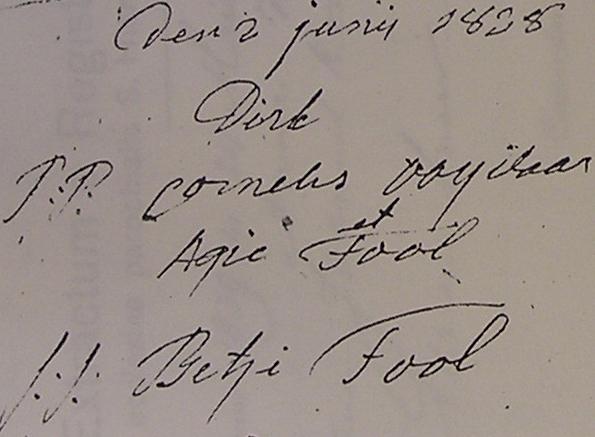 Den 2 junij 1828
Dirk
P:P. Cornelis Dooijewaar
et
Agie Fool
S:S: Betje Fool